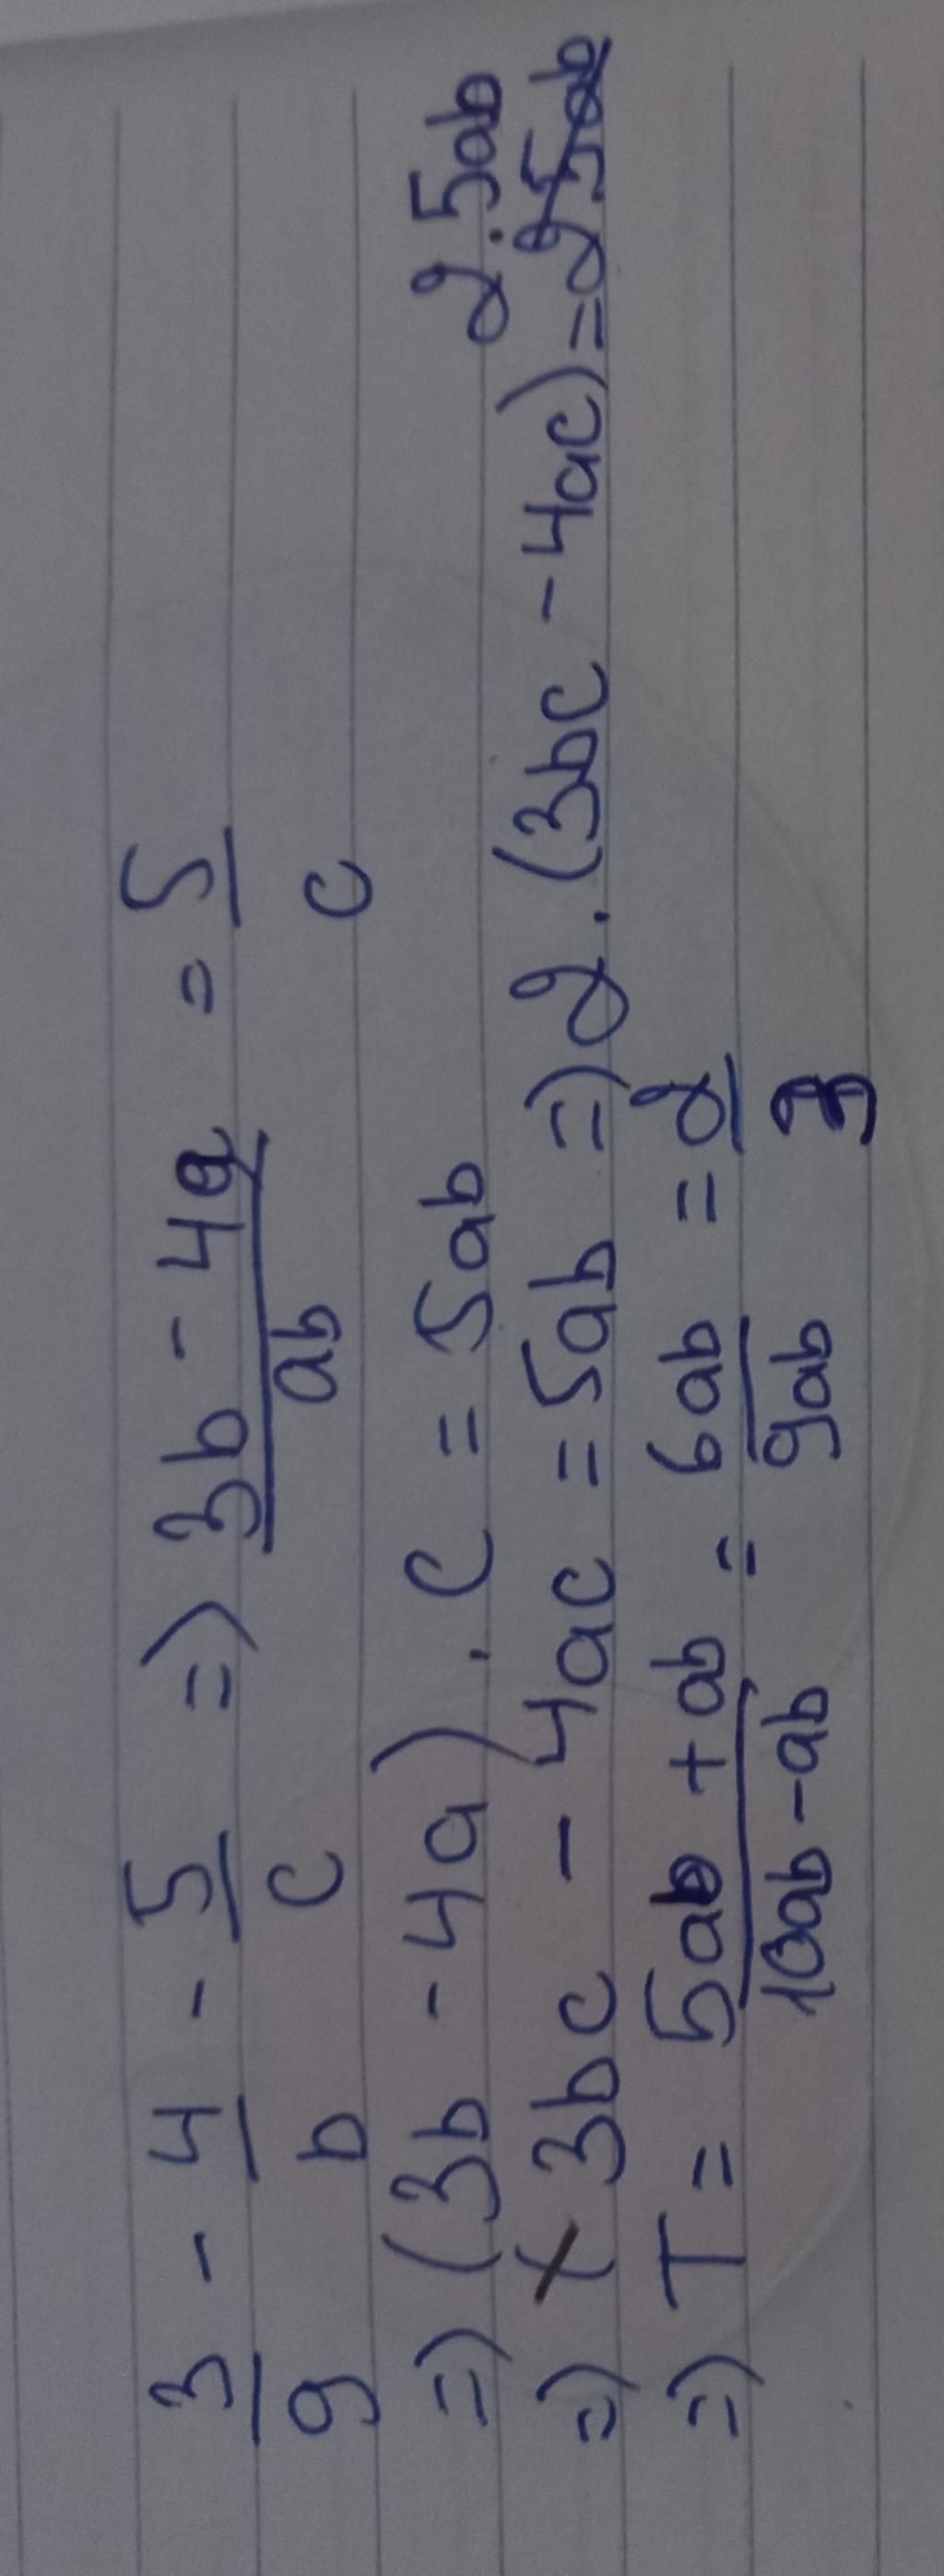 3/a - 4/b - 5/c => (3b - 4a)/ab = 5/c
=> (3b - 4a) . c = 5ab
=> 3bc - 4ac = 5ab => 2 . (3bc - 4ac) = 2.5ab
=> T = (5ab + ab)/(10ab - ab) = 6ab/9ab = 2/3